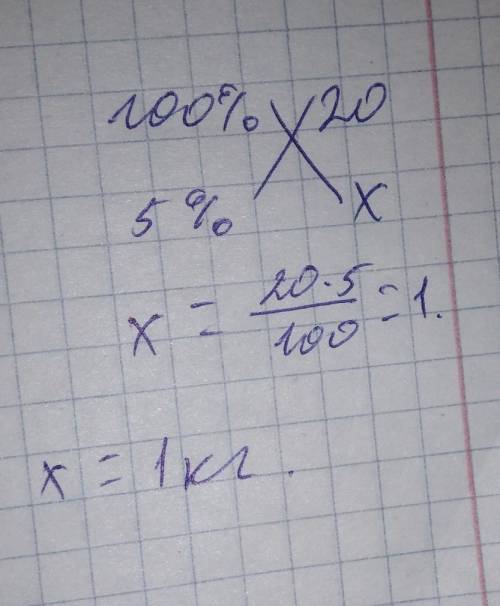 100% 20
5% x
x = 20·5/100 = 1.
x = 1кг.